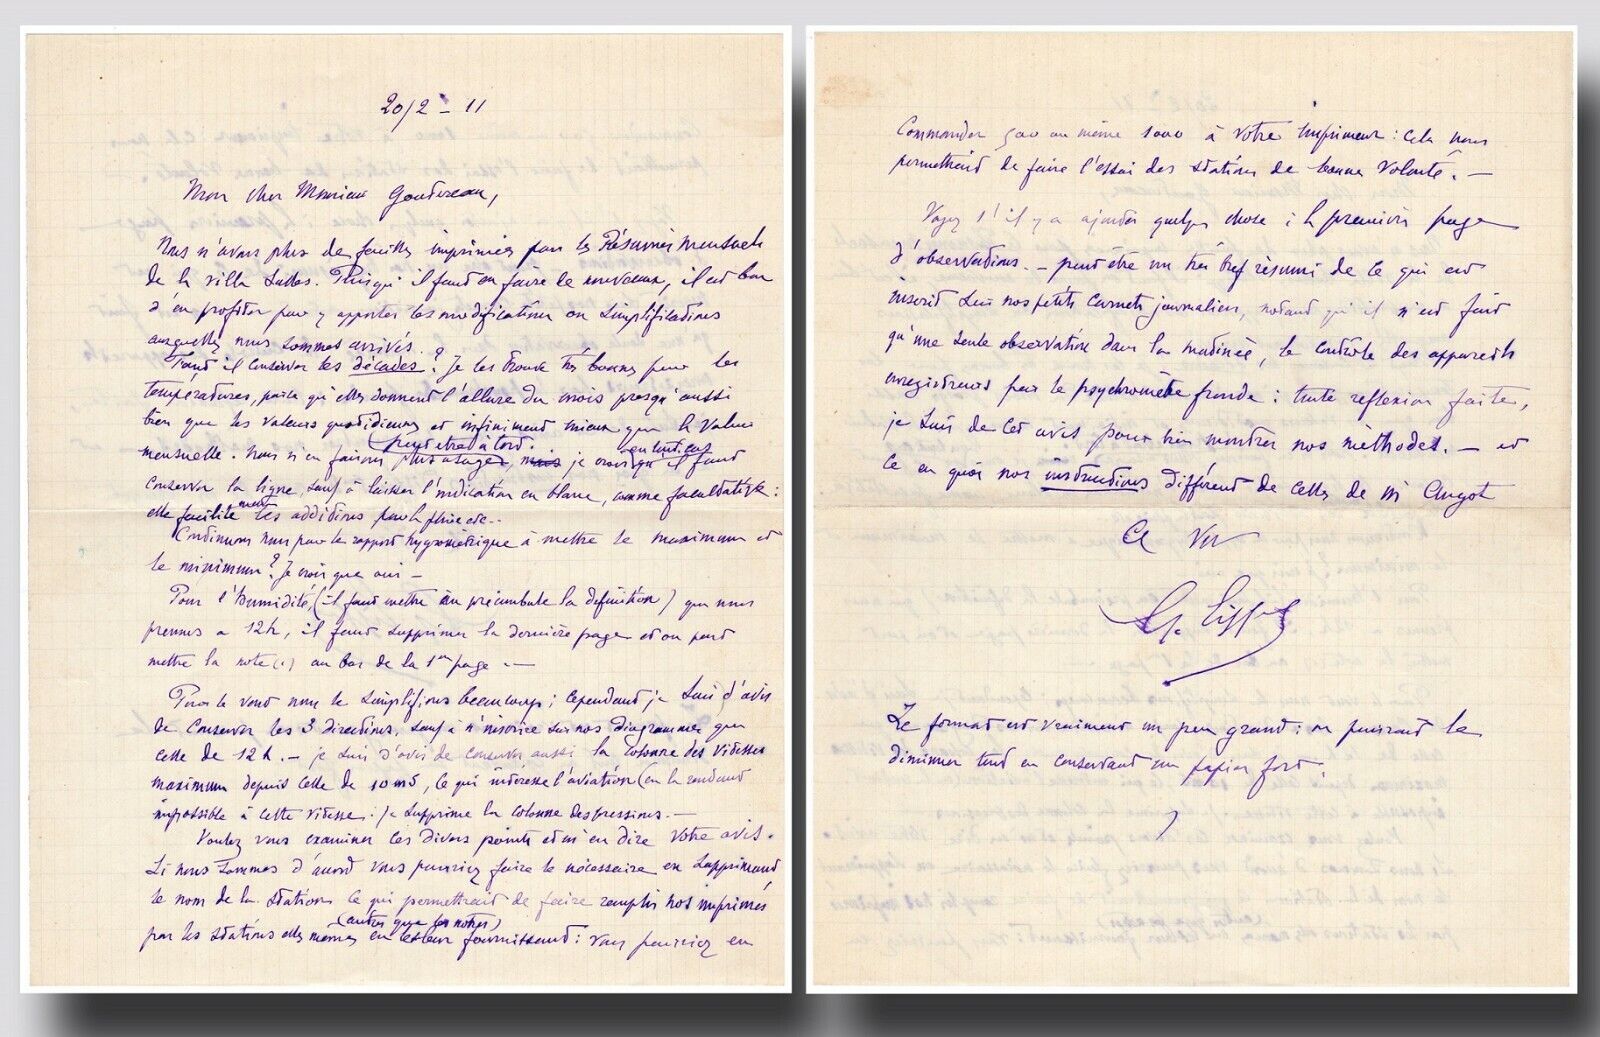 20/2 - 11
Mon cher Monsieur Goutereau,
Nous n'avons plus de feuilles imprimées pour les Résumés mensuels
de la villa Salles. Puisqu'il faut en faire de nouveaux, il est bon
d'en profiter pour y apporter les modifications ou simplifications
auxquelles nous sommes arrivés.
Faut il conserver les décades? Je les trouve très bonnes pour les
températures, parce qu'elles donnent l'allure du mois presqu'aussi
bien que les valeurs quotidiennes et infiniment mieux que la valeur
(peut être à tort.
mensuelle. Nous n'en faisons plus usage, mais je crois qu'il faut
en tout cas
conserver la ligne, sauf à laisser l'indication en blanc, comme facultative:
elle facilite les additions pour la pluie etc..
Continuons nous pour le rapport hygrométrique à mettre le maximum et
le minimum? Je crois que oui -
Pour l'Humidité, (il faut mettre en préambule la définition) que nous
prenons à 12h, il faut supprimer la dernière page et on peut
mettre la note (1) au bas de la 1ère page. —
Pour le vent nous le simplifions beaucoup; cependant je suis d'avis
de conserver les 3 directions, sauf à n'inscrire sur nos diagrammes que
celle de 12h. - je suis d'avis de conserver aussi la colonne des vitesses
maximum depuis celle de 10 ms, ce qui intéresse l'aviation (en la rendant
impossible à cette vitesse. Je supprime la colonne des pressions. —
Voulez vous examiner ces divers points et m'en dire votre avis.
Si nous sommes d'accord vous pourriez faire le nécessaire en supprimant
le nom de la station ce qui permettrait de faire remplir nos imprimés
(autres que les notres)
par les stations elles mêmes en les leur fournissant: vous pourriez en
Commander 500 ou même 1000 à votre Imprimeur: Cela nous
permettrait de faire l'essai des stations de bonne volonté. —
Voyez s'il y a à ajouter quelque chose à la première page
d'observations. - peut être un très bref résumé de ce qui est
inscrit sur nos petits carnets journaliers, notant qu'il n'est fait
qu'une seule observation dans la matinée, le contrôle des appareils
enregistreurs par le psychromètre fronde: toute réflexion faite,
je suis de cet avis pour bien montrer nos méthodes. — et
ce en quoi nos instructions diffèrent de celles de M Angot
a vs
Le format est vraiment un peu grand: on pourrait le
diminuer tout en conservant un papier fort.